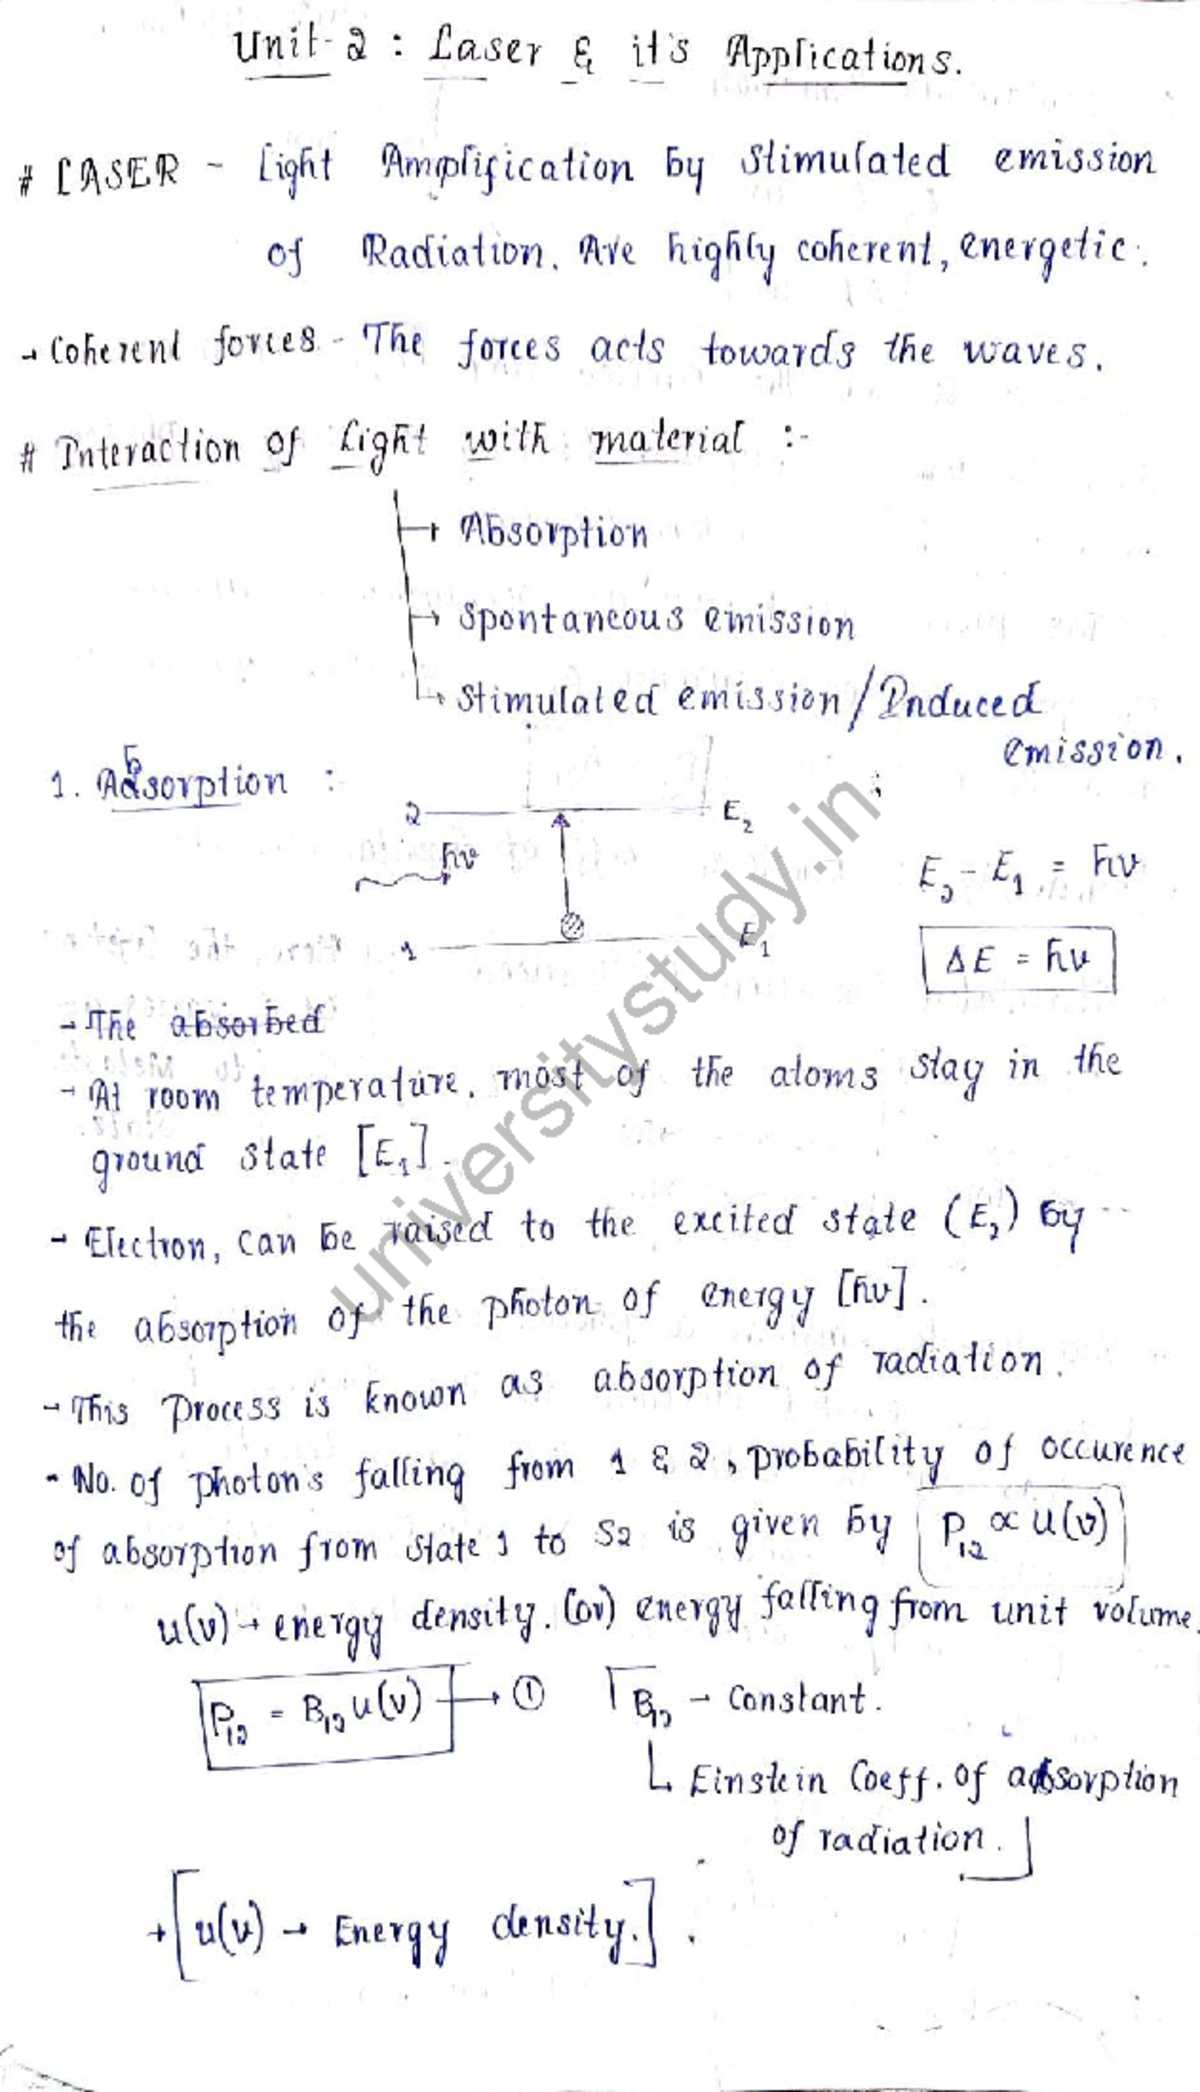 Unit-2 : Laser & it's Applications.
# LASER - Light Amplification by Stimulated emission
of Radiation. Are highly coherent, energetic.
→ Coherent forces - The forces acts towards the waves.
# Interaction of Light with material :-
→ Absorption
→ Spontaneous emission
→ Stimulated emission / Induced
emission.
1. Absorption :
2 E₂
hν
E₂ - E₁ = hν
1 E₁
ΔE = hν
- The absorbed
- At room temperature, most of the atoms stay in the
ground state [E₁].
- Electron, can be raised to the excited state (E₂) by
the absorption of the photon of energy [hν].
- This process is known as absorption of radiation.
- No. of photon's falling from 1 & 2, probability of occurence
of absorption from state 1 to S2 is given by P₁₂ ∝ u(ν)
u(ν) → energy density. (or) energy falling from unit volume.
P₁₂ = B₁₂ u(ν) → ① B₁₂ - Constant.
Einstein Coeff. of absorption
of radiation.
→ [u(ν) → Energy density.].
universitystudy.in